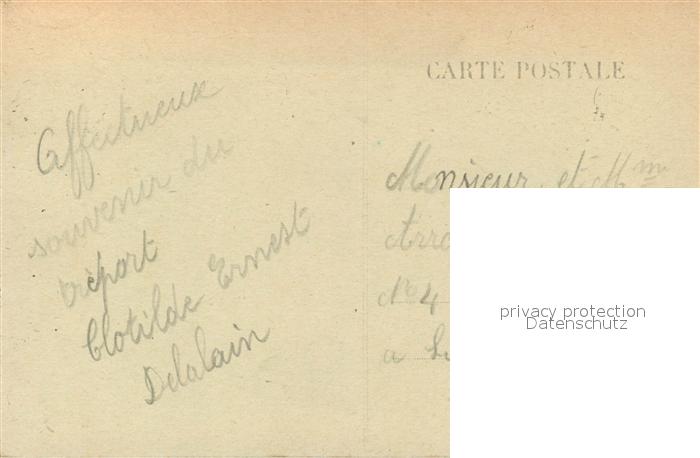 CARTE POSTALE
Affectueux
souvenir du
tréport
Clotilde Ernest
Delalain
Monsieur et Mme
No 4
a
privacy protection
Datenschutz